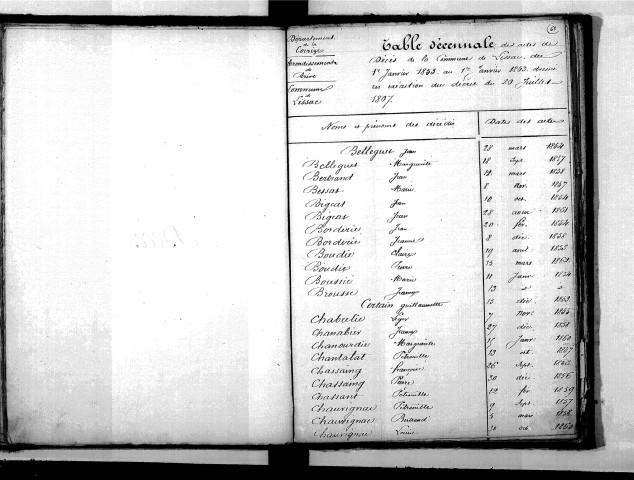 Département
de la
Corrèze
Arrondissement
de
Brive
Commune
de
Lissac
Table décennale des actes de
Décès de la Commune de Lissac, du
1er Janvier 1853 au 1er Janvier 1863 dressée
en exécution du décret du 20 Juillet
1807.
Noms et prénoms des décédés Dates des actes
Belleguet Jean 28 mars 1854
Belleguet Marguerite 18 Sept. 1857
Bertrand Jean mars 1858
Bessat Marie 8 Nov. 1857
Bigeat Jean 10 oct. 1854
Bigeat Jean 28 1861
Borderie Jean 20 fév. 1854
Borderie Jeanne 8 déc. 1858
Boudie Claire 19 avril
Boudie Pierre 15 mars
Boussié Marie 11 Janv. 1854
Brousse 13 d° d°
Certain guillaumette 15 déc. 1853
Chabrelie Léger 7 Nov.
Chanabier 27 déc. 1858
Chanourdie Marguerite 15 Janv. 1860
Chantalat Pétronille 13 oct. 1857
Chassaing françois 26 Sept.
Chassaing Pierre 30 déc. 1856
Chassant Pétronille 12 fév. 1859
Chauvignac Pétronille 9 Sept. 1857
Chauvignac Bertrand 5 mars 1858
Chauvignac Louise oct.